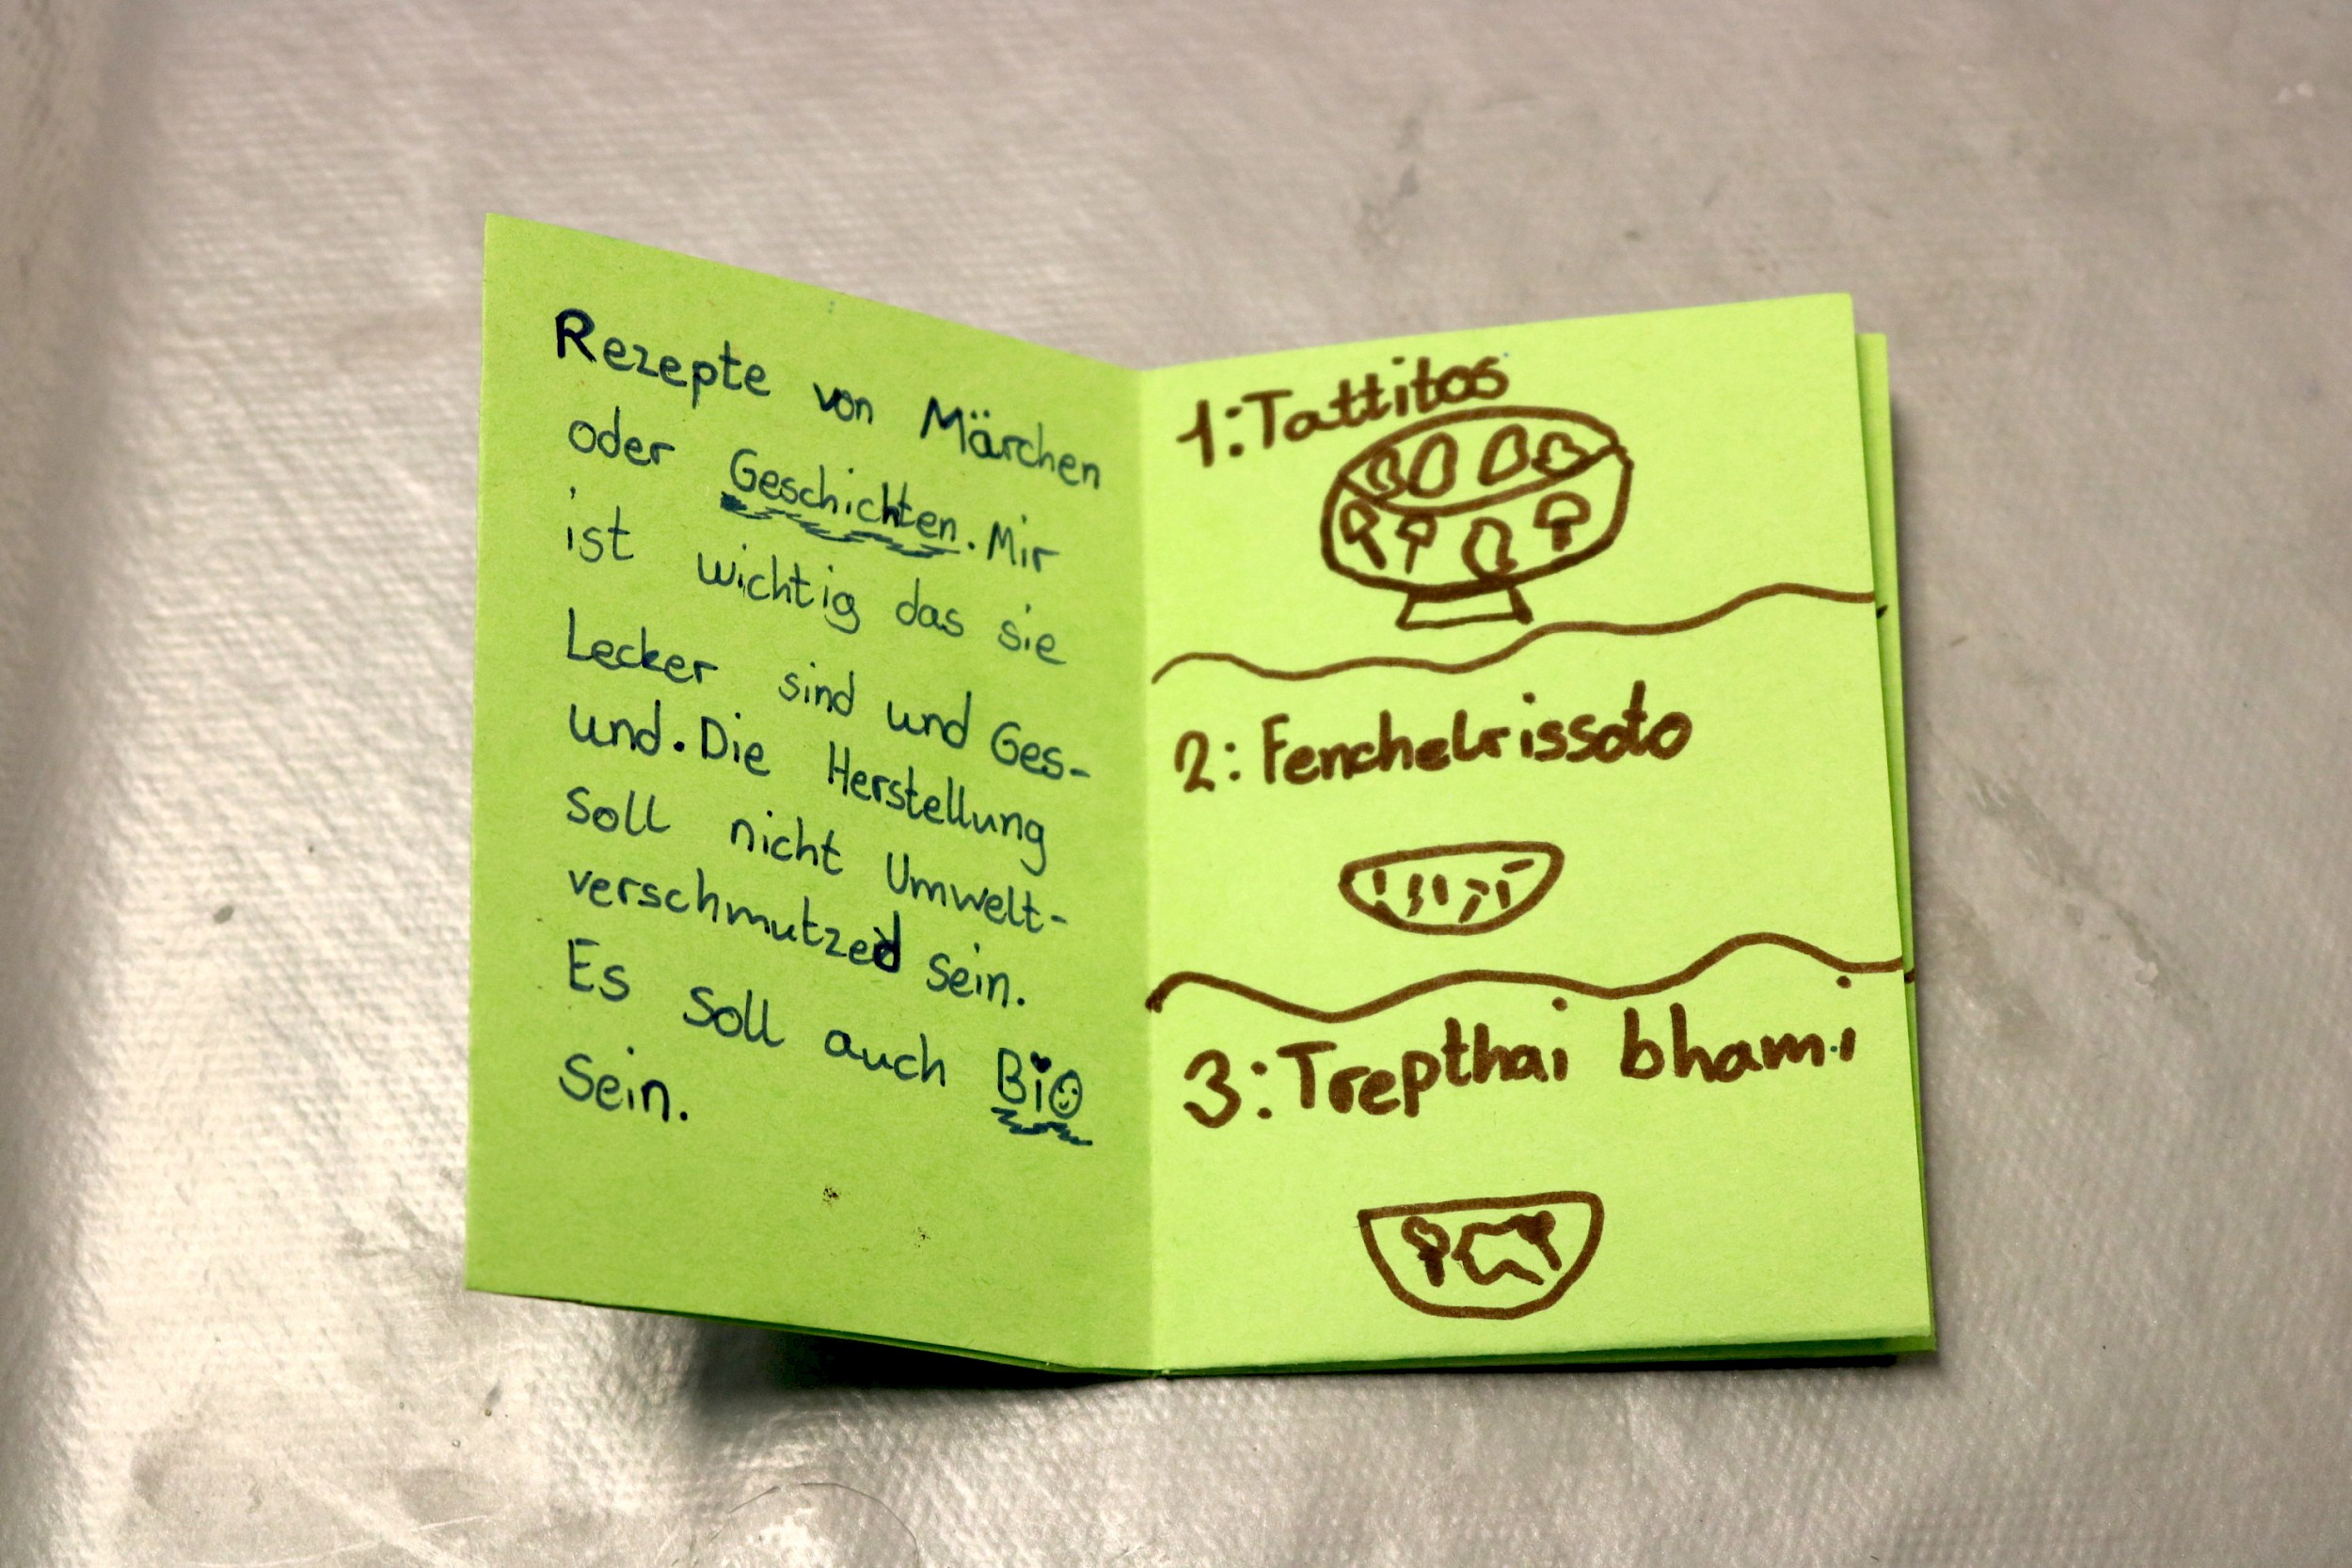 Rezepte von Märchen
oder Geschichten. Mir
ist wichtig das sie
Lecker sind und Ges-
und. Die Herstellung
Soll nicht Umwelt-
verschmutzed Sein.
Es Soll auch Bio
Sein.
1: Tattitos
2: Fenchelrissoto
3: Trepthai bhami